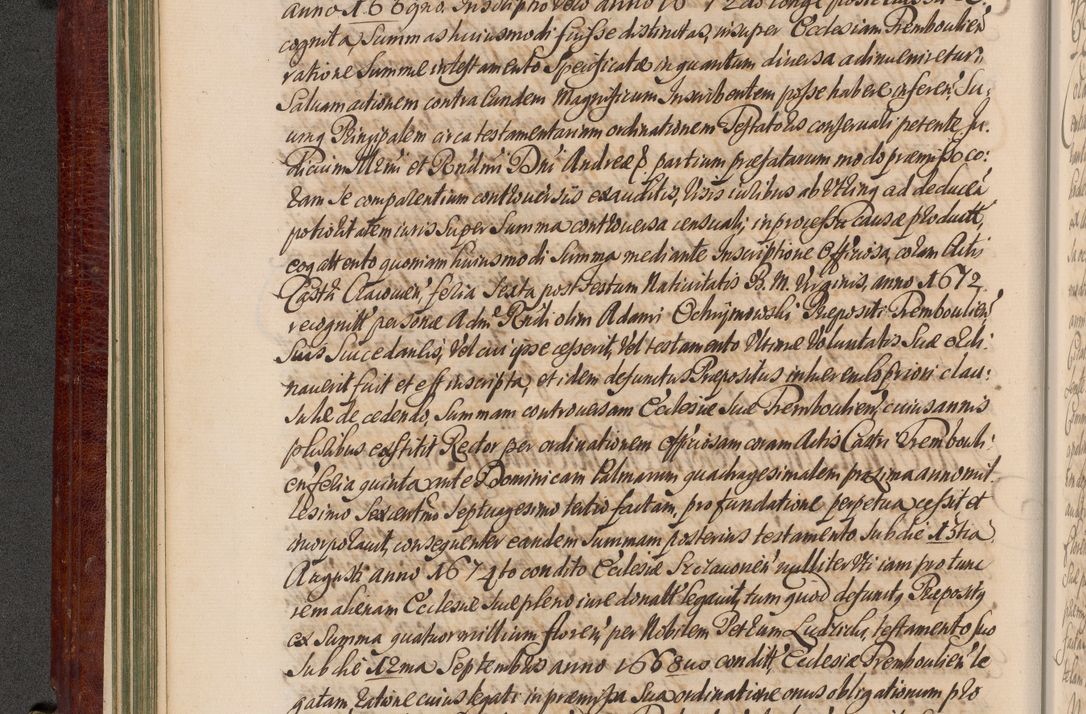 anno 1669no. Inscriptio vero anno 1672do longe posterius
cognita, Summas huiusmodi fuisse distinctas, insuper Ecclesiam Tremboulien
ratione Summe in testamento Specificatæ in quantum diversa adinveniretur,
Salvam actionem contra Eundem Magnificum Inscribentem posse habere inferen, Su-
umq Principalem circa testamentariam ordinationem Testatoris conservali petente Ju-
dicium Illmi et Rndmi Dni Andreæ & partium præfatarum modo præmisso co-
ram se comparentium controversiis exauditis, Visis iuribus ab utrinq ad deducen
potioritatem iuris Super Summa controversa censuali, in processu Causæ productt,
ex attento quoniam huiusmodi Summa mediante Inscriptione Officiosa, coram Actis
Castr Clarouen, feria Sexta post festum Nativitatis B. M. Virginis, anno 1672
recognitt personæ Admr Rndi olim Adami Ochrymowski Præpositi Tremboulien
Suis Succedaneis, vel cui ipse cesserit, vel testamento Ultimæ Voluntatis Suæ ordi-
naverit fuit et est inscripta, et idem defunctus Præpositus inhærendo priori clau-
sulæ de cedendo, Summam controversam Ecclesiæ Suæ Tremboulien, cuius annis
pluribus extitit Rector per ordinationem officiosam coram Actis Castri Trembouli-
en feria quinta ante Dominicam Palmarum quadragesimalem proxima anno mil
lesimo Sexcentmo Septuagesimo tertio factam, pro fundatione perpetua cessit et
incorporauit, consequenter eandem Summam posterius testamento sub die 13tia
Augusti anno 1674to condito Ecclesiæ nulliter uti iam pro tunc
rem alienam Ecclesiæ suæ pleno iure donatt legavit, tum quod defunctq Præpositq
ex Summa quatuor millium floren per Nobilem Petrum Ludzicki, testamento suo
Sub die 12ma Septembris anno 1668uo conditt Ecclesiæ Tremboulien le
gatam ratione cuius legati in præmissa Sua ordinatione onus obligationum pro